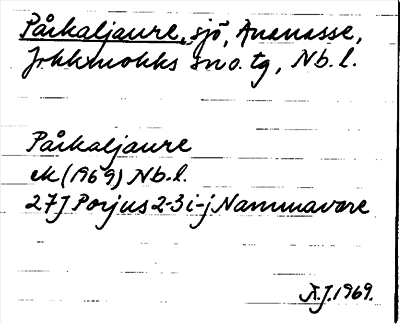 Pårkaljaure, sjö, Ananasse,
Jokkmokks sn o. tg, Nb. l.
Pårkaljaure
ek (1969) Nb. l.
27J Porjus 2-3 i-j Nammavare
A.J. 1969.